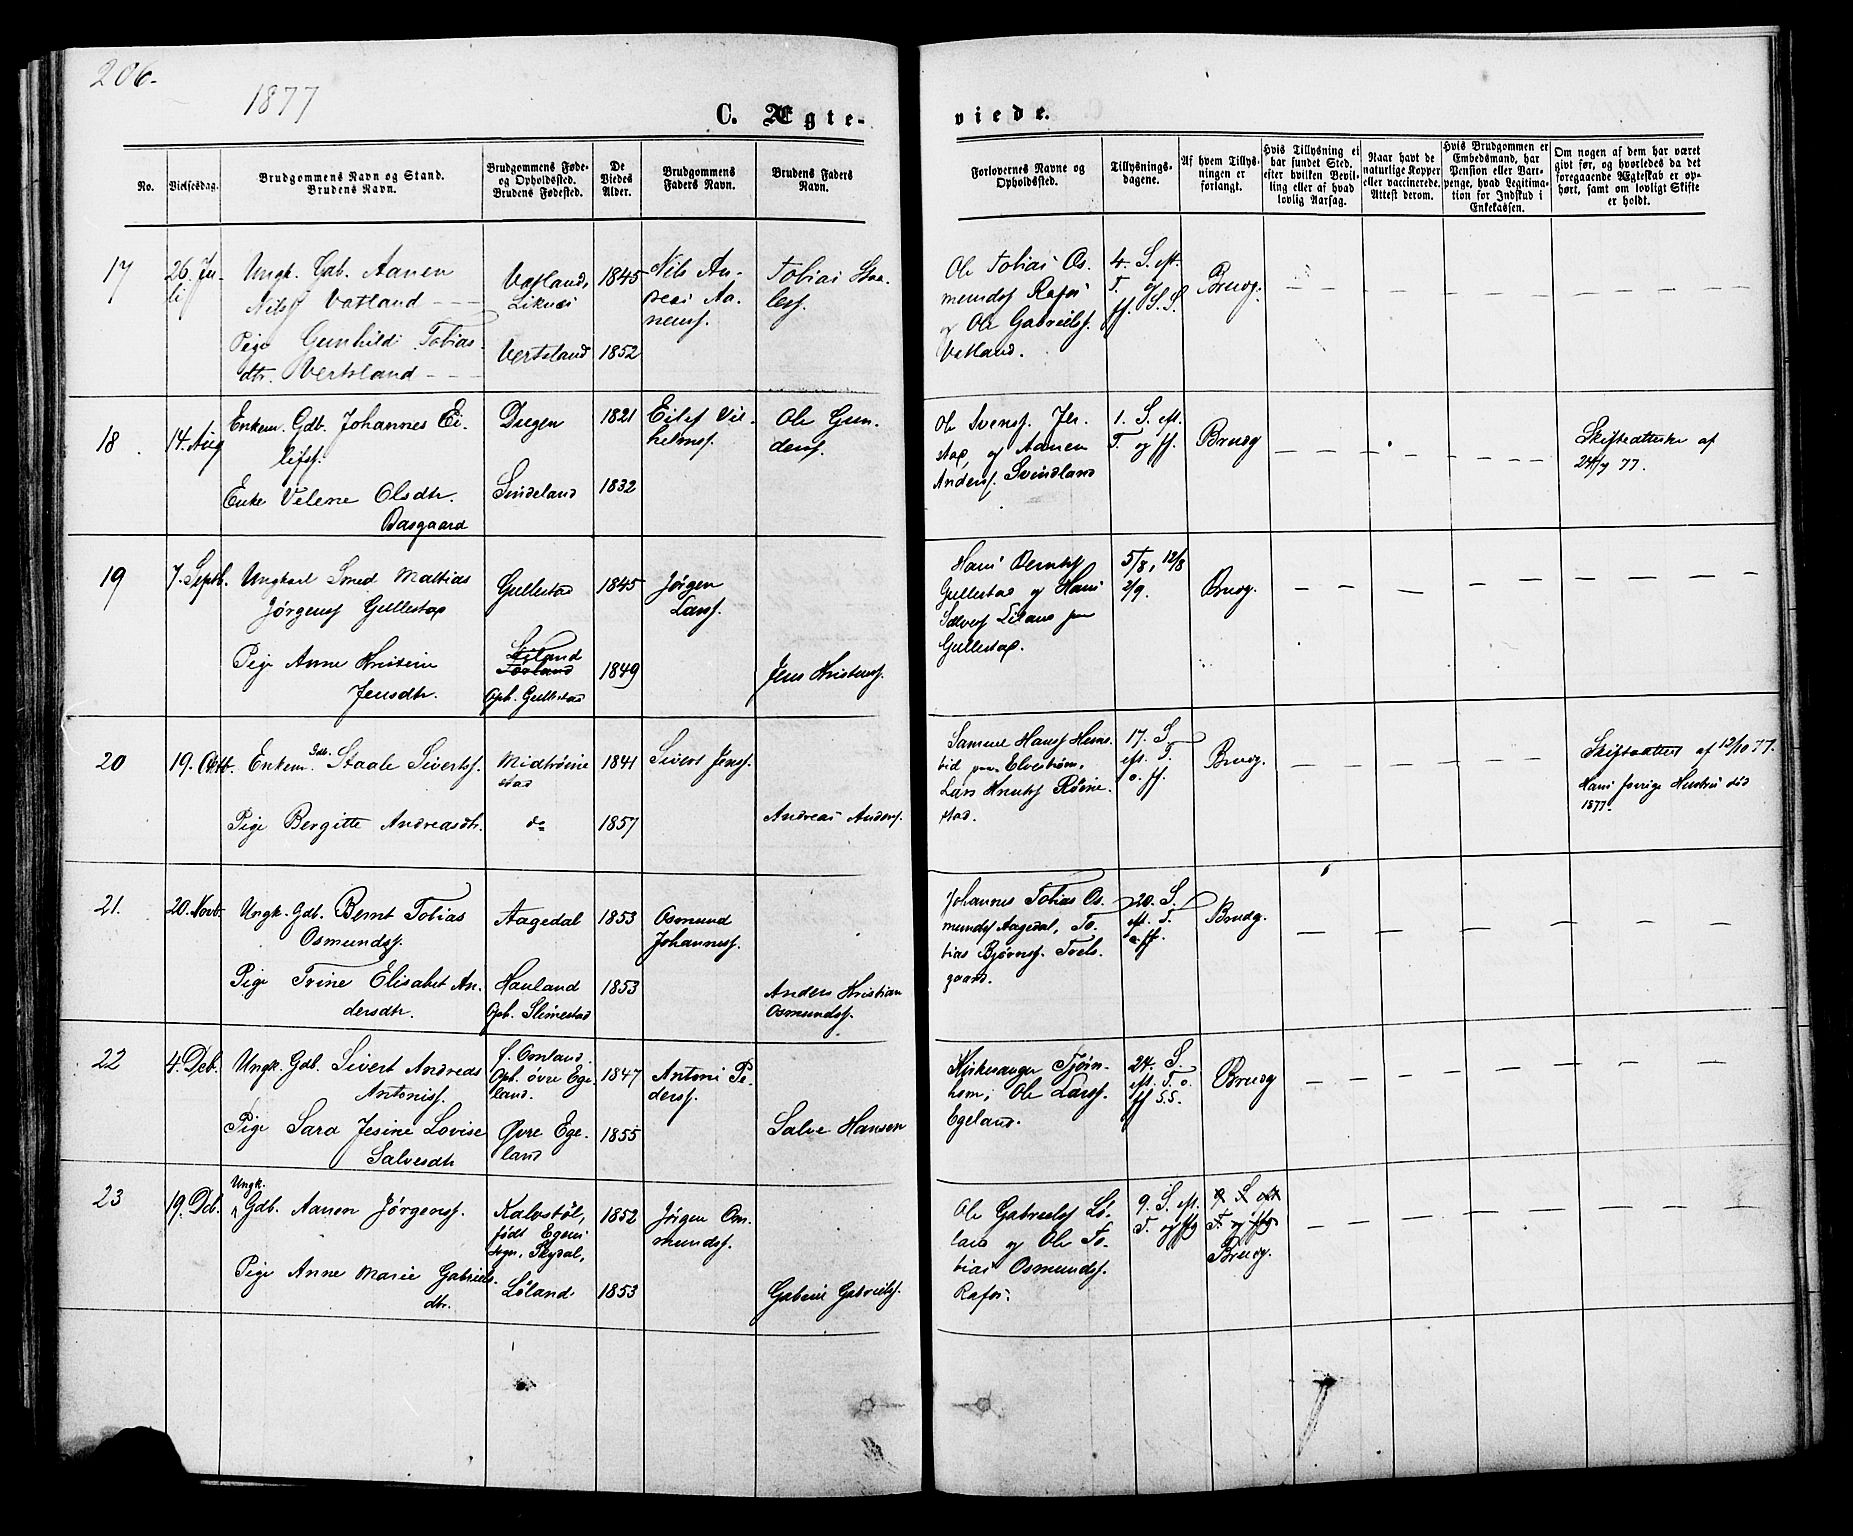 206.
1877
C. Ægte-
viede.
No.
Vielsesdag.
Brudgommens Navn og Stand.
Brudens Navn.
Brudgommens Føde-
og Opholdssted.
Brudens Fødested.
De
Viedes
Alder.
Brudgommens
Faders Navn.
Brudens Faders
Navn.
Forlovernes Navne og
Opholdssted.
Tillysnings-
dagene.
Af hvem Tillys-
ningen er
forlangt.
Hvis Tillysning ei
har fundet Sted,
efter hvilken Bevil-
ling eller af hvad
lovlig Aarsag.
Naar havt de
naturlige Kopper
eller vaccinerede.
Attest derom.
Hvis Brudgommen er
Embedsmand, har
Pension eller Vart-
penge, hvad Legitima-
tion for Indskud i
Enkekassen.
Om nogen af dem har været
givt før, og hvorledes da det
foregaaende Ægteskab er op-
hørt, samt om lovligt Skifte
er holdt.
17
26. Ju-
li
Ungk. Gdb. Aanen
Nilss. Vatland
Pige Gunhild Tobias-
dtr. Vertsland
Vatland,
Liknes
Vertsland
1845
1852
Nils An-
dreas Aa-
nens.
Tobias Staa-
less.
Ole Tobias Os-
munds. Rafos
og Ole Gabriels.
Vatland.
4. S. eft.
T. og
ff. S. S.
Brudg.
18
14. Aug
Enkem. Gdb. Johannes Ei-
lifs.
Enke Velene Olsdtr.
Basgaard
Dugen
Sindeland
1821
1832
Eilef Vil-
helms.
Ole Gun-
ders.
Ole Svens. Jer-
stad, og Aanen
Anders. Svindland
1. S. eft.
T. og ff.
Brudg
Skifteatteste af
24/7 77.
19
7. Septb.
Ungkarl Smed Mathias
Jørgens. Gullestad
Pige Anne Kristine
Jensdtr.
Gullestad
Oph. Gullestad
1845
1849
Jørgen
Lars.
Jens Kristens.
Hans Bernts.
Gullestad og Hans
Sælves. Eiland paa
Gullestad.
5/8, 12/8
2/9.
Brudg.
20
19. Octb.
Enkem. Gdb. Staale Siverts.
Pige Bergitte Andreasdtr.
Midtrøine
stad
do
1841
1857
Sivert Jens.
Andreas Anders.
Samuel Hans. Heins-
tid paa Elvestrøm,
Lars Knuts. Røine-
stad.
17. S.
eft. T.
o. ff.
Brudg.
Skifteattest af 12/10 77.
Hans forrige Hustru død
1877.
21.
20. Novb.
Ungk. Gdb. Bernt Tobias
Osmunds.
Pige Trine Elisabet An-
dersdtr.
Aagedal
Hauland
Oph. Slimestad
1853
1853
Osmund
Johanness.
Anders Kristian
Osmunds.
Johannes Tobias Os-
munds. Aagedal, To-
bias Bjørns. Tvels-
gaard.
20. S.
eft. T.
o ff.
Brudg.
22
4. Deb.
Ungk. Gdb. Sivert Andreas
Antonis.
Pige Sara Jesine Lovise
Salvesdtr
f. Omland.
Oph. øvre Ege-
land.
Øvre Ege-
land
1847
1855
Antoni Pe-
ders.
Salve Hansen
Kirkesanger Tjørn-
hom, Ole Lars.
Egeland.
24. S.
eft. T. o.
ff S.S.
Brudg
23
19. Deb.
Ungk.
Gdb. Aanen Jørgens.
Pige Anne Marie Gabriels-
dtr.
Kalvstøl,
født Egens
Sogn, Skydal,
Løland
1852
1853
Jørgen Os-
munds.
Gabriel Gabriels.
Ole Gabriels. Lø-
land og Ole To-
bias Osmunds.
Rafos.
9. S. eft.
T. og ffg
9. S eft
T. og ffg
Brudg.